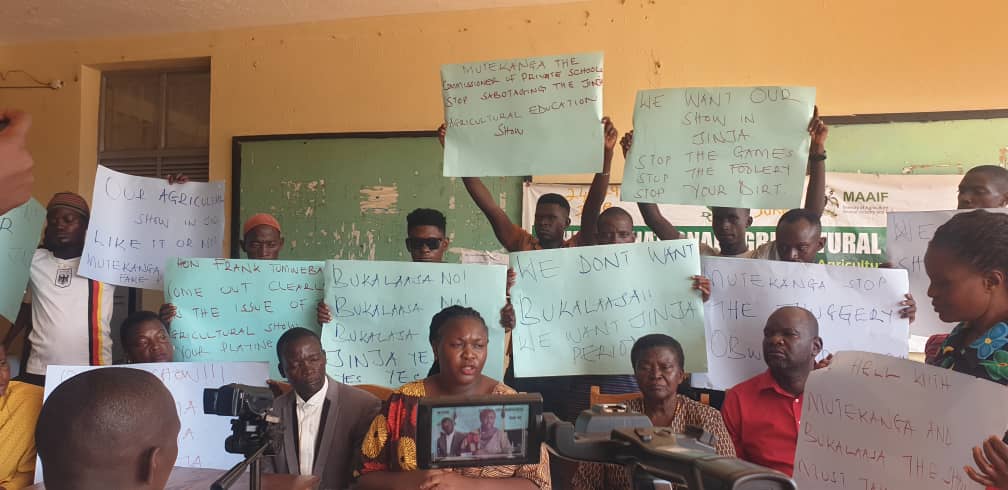 MUTEKANGA THE
COMMISSIONER OF PRIVATE SCHOOLS
STOP SABOTAGING THE JINJA
AGRICULTURAL EDUCATION
SHOW
WE WANT OUR
SHOW IN
JINJA
STOP THE GAMES
STOP THE FOOLERY
STOP YOUR DIRT.
MAAIF
AGRICULTURAL
OUR AGRICUL
SHOW IN
LIKE IT OR NOT
MUTEKANGA
HON FRANK TUMWEBA
COME OUT CLEARL
THE ISSUE OF
GRICULTURAL SHOW
YOUR PLAYING
BUKALAASA NO!
BUKALAASA NO!
BUKALAJA
JINJA YE
YES YES
WE DONT WANT
BUKALAASA!!
WE WANT JINJA
PERIOD
MUTEKANGA STOP
THE THUGGERY
HELL WITH
MUTEKANGA AND
BUKALAASA THE
MUST